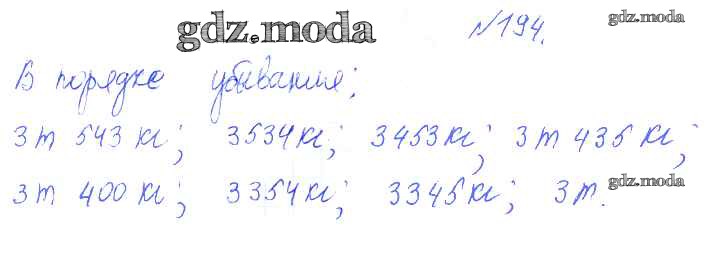 gdz.moda
№194.
gdz.moda
В порядке убывания:
3т 543 кг; 3534 кг; 3453 кг; 3т 435 кг;
gdz.moda
3т 400 кг; 3354 кг; 3345 кг; 3т.